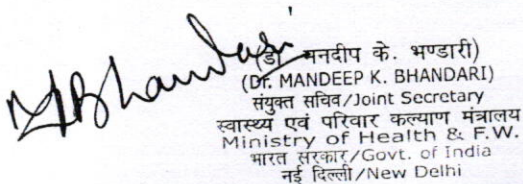 MKBhandari
(डॉ मनदीप के. भण्डारी)
(Dr. MANDEEP K. BHANDARI)
संयुक्त सचिव/Joint Secretary
स्वास्थ्य एवं परिवार कल्याण मंत्रालय
Ministry of Health & F.W.
भारत सरकार/Govt. of India
नई दिल्ली/New Delhi